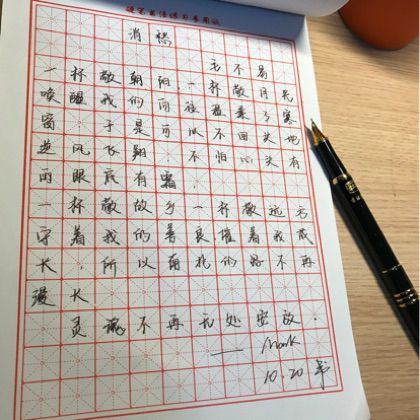 硬笔书法练习专用纸
消愁 毛不易
一杯敬朝阳,一杯敬月光
唤醒我的向往温柔了寒
窗,于是可以不回头地
逆风飞翔,不怕心头有
雨眼底有霜,
一杯敬故乡一杯敬远方
守着我的善良催着我成
长,所以南北的路不再
漫长
灵魂不再无处安放.
10.20书